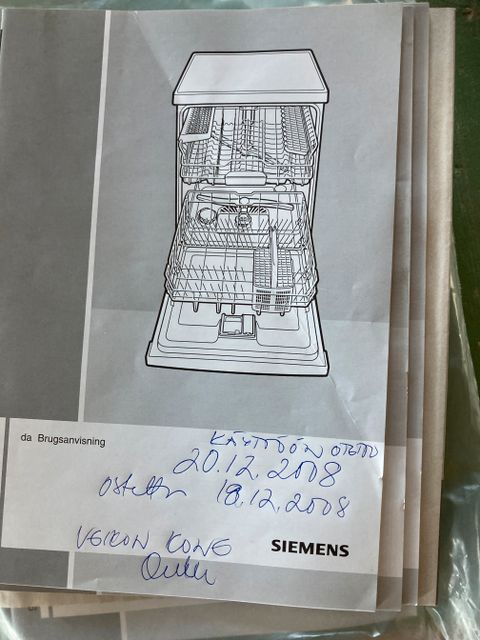 da Brugsanvisning
KÄYTTÖÖN OTETTU
20.12.2008
Ostettu 18.12.2008
VEIKON KONE
SIEMENS
Oulu